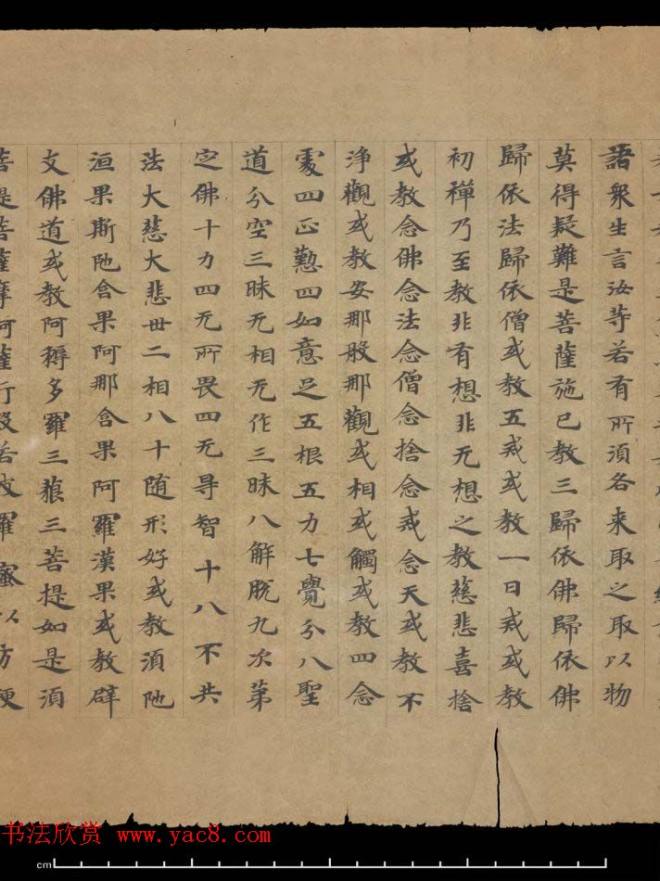 語衆生言汝等若有所須各来取之取以物
莫得疑難是菩薩施已教三歸依佛歸依佛
歸依法歸依僧或教五戒或教一日戒或教
初禪乃至教非有想非无想之教慈悲喜捨
或教念佛念法念僧念捨念戒念天或教不
淨觀或教安那般那觀或相或觸或教四念
處四正懃四如意足五根五力七覺分八聖
道分空三昧无相无作三昧八解脫九次第
定佛十力四无所畏四无㝵智十八不共
法大慈大悲卅二相八十随形好或教湏陁
洹果斯陁含果阿那含果阿羅漢果或教辟
支佛道或教阿耨多羅三藐三菩提如是湏
菩提菩薩摩訶薩行般若波羅蜜以方便
书法欣赏 www.yac8.com
cm